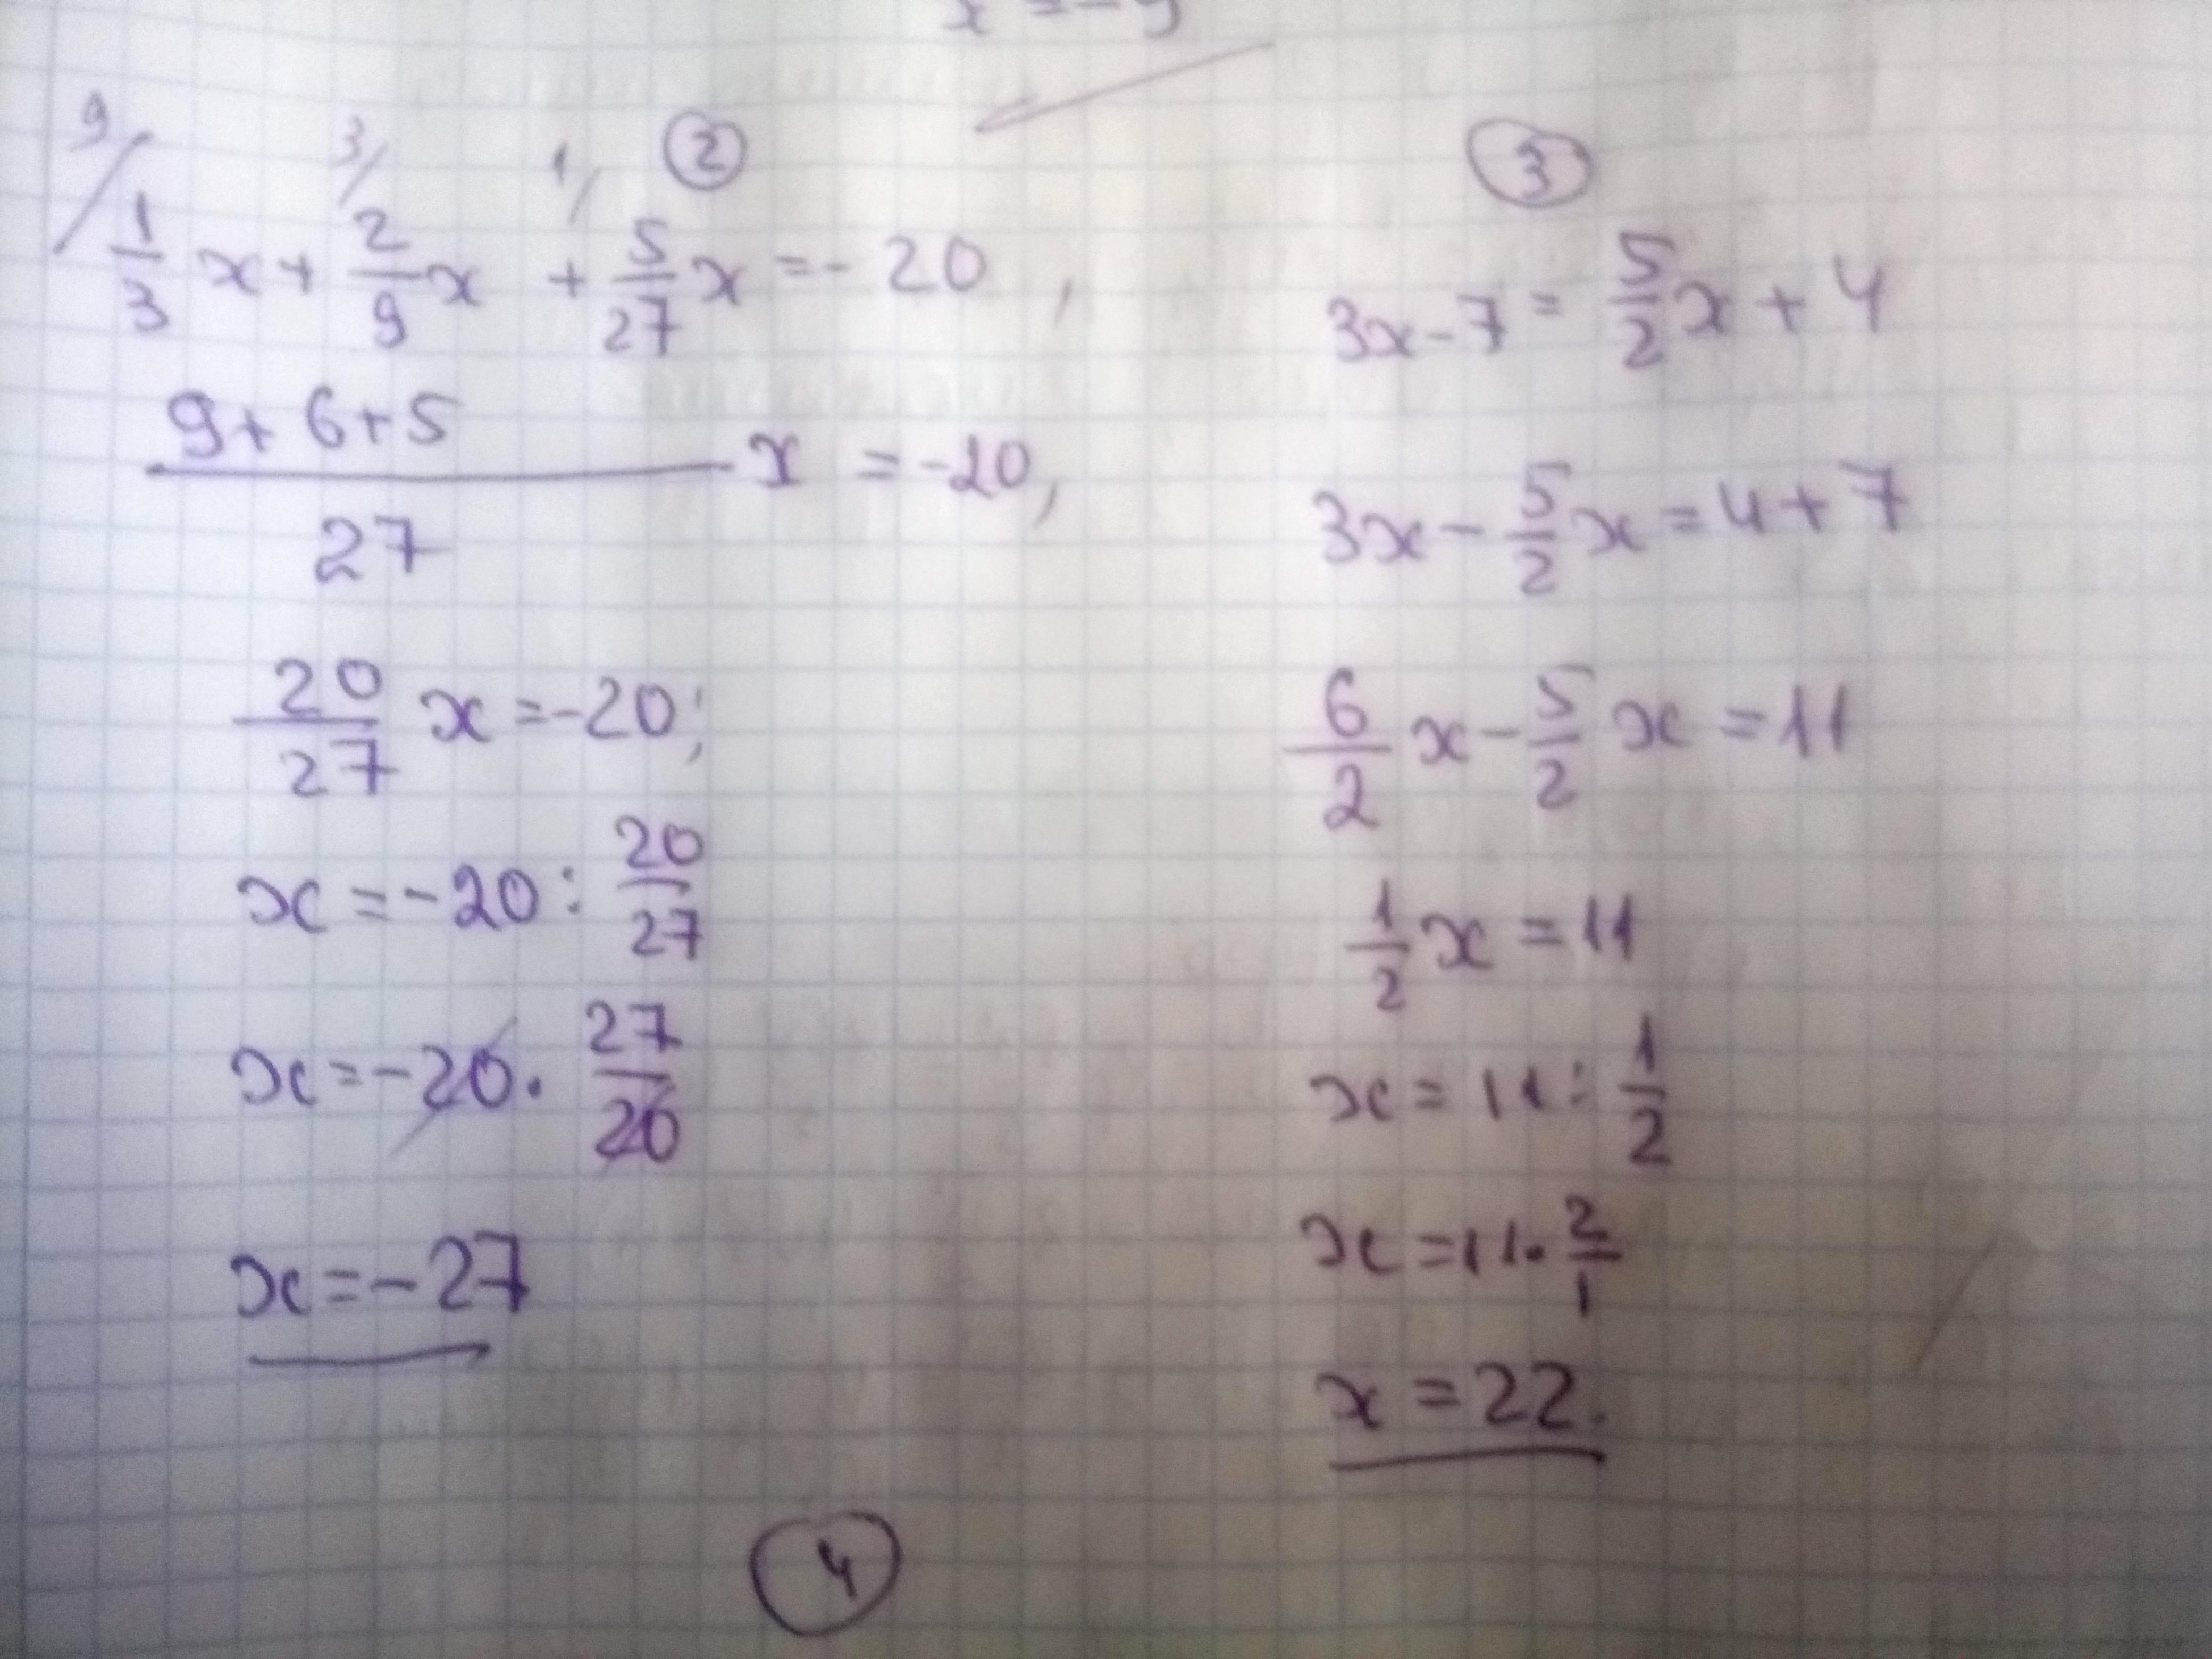 x = -9
②
9/ 3/ 1/
1/3 x + 2/9 x + 5/27 x = - 20 ,
9 + 6 + 5 / 27 x = -20,
20/27 x = -20;
x = -20 : 20/27
x = -20 · 27/20
x = -27
③
3x - 7 = 5/2 x + 4
3x - 5/2 x = 4 + 7
6/2 x - 5/2 x = 11
1/2 x = 11
x = 11 : 1/2
x = 11 · 2/1
x = 22.
④